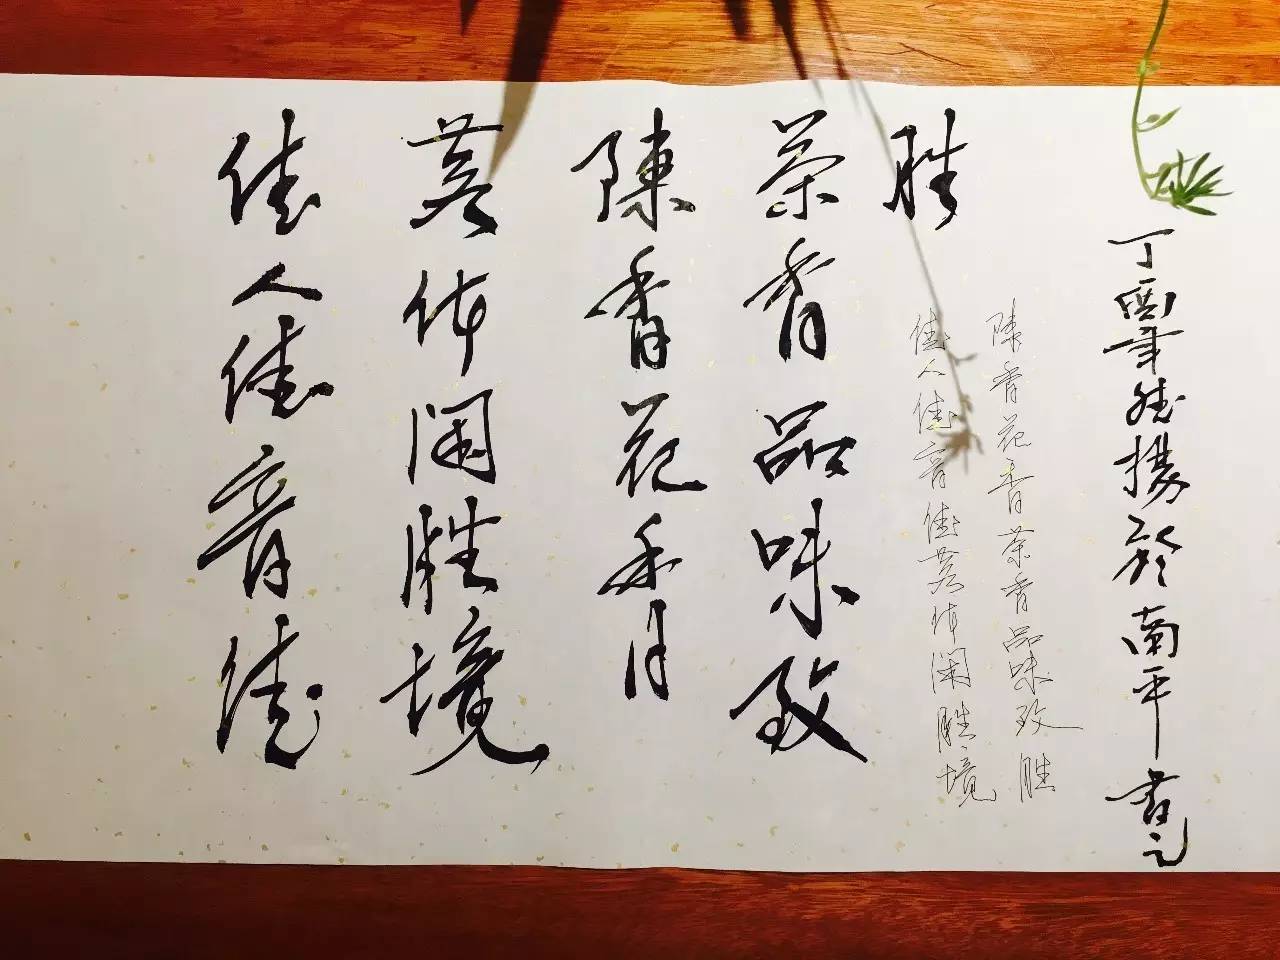 佳人佳音佳
茗休闲胜境
陳香花香
茶香品味致
胜
佳人佳音佳茗休闲胜境
陳香花香茶香品味致胜
丁酉年於南平書之